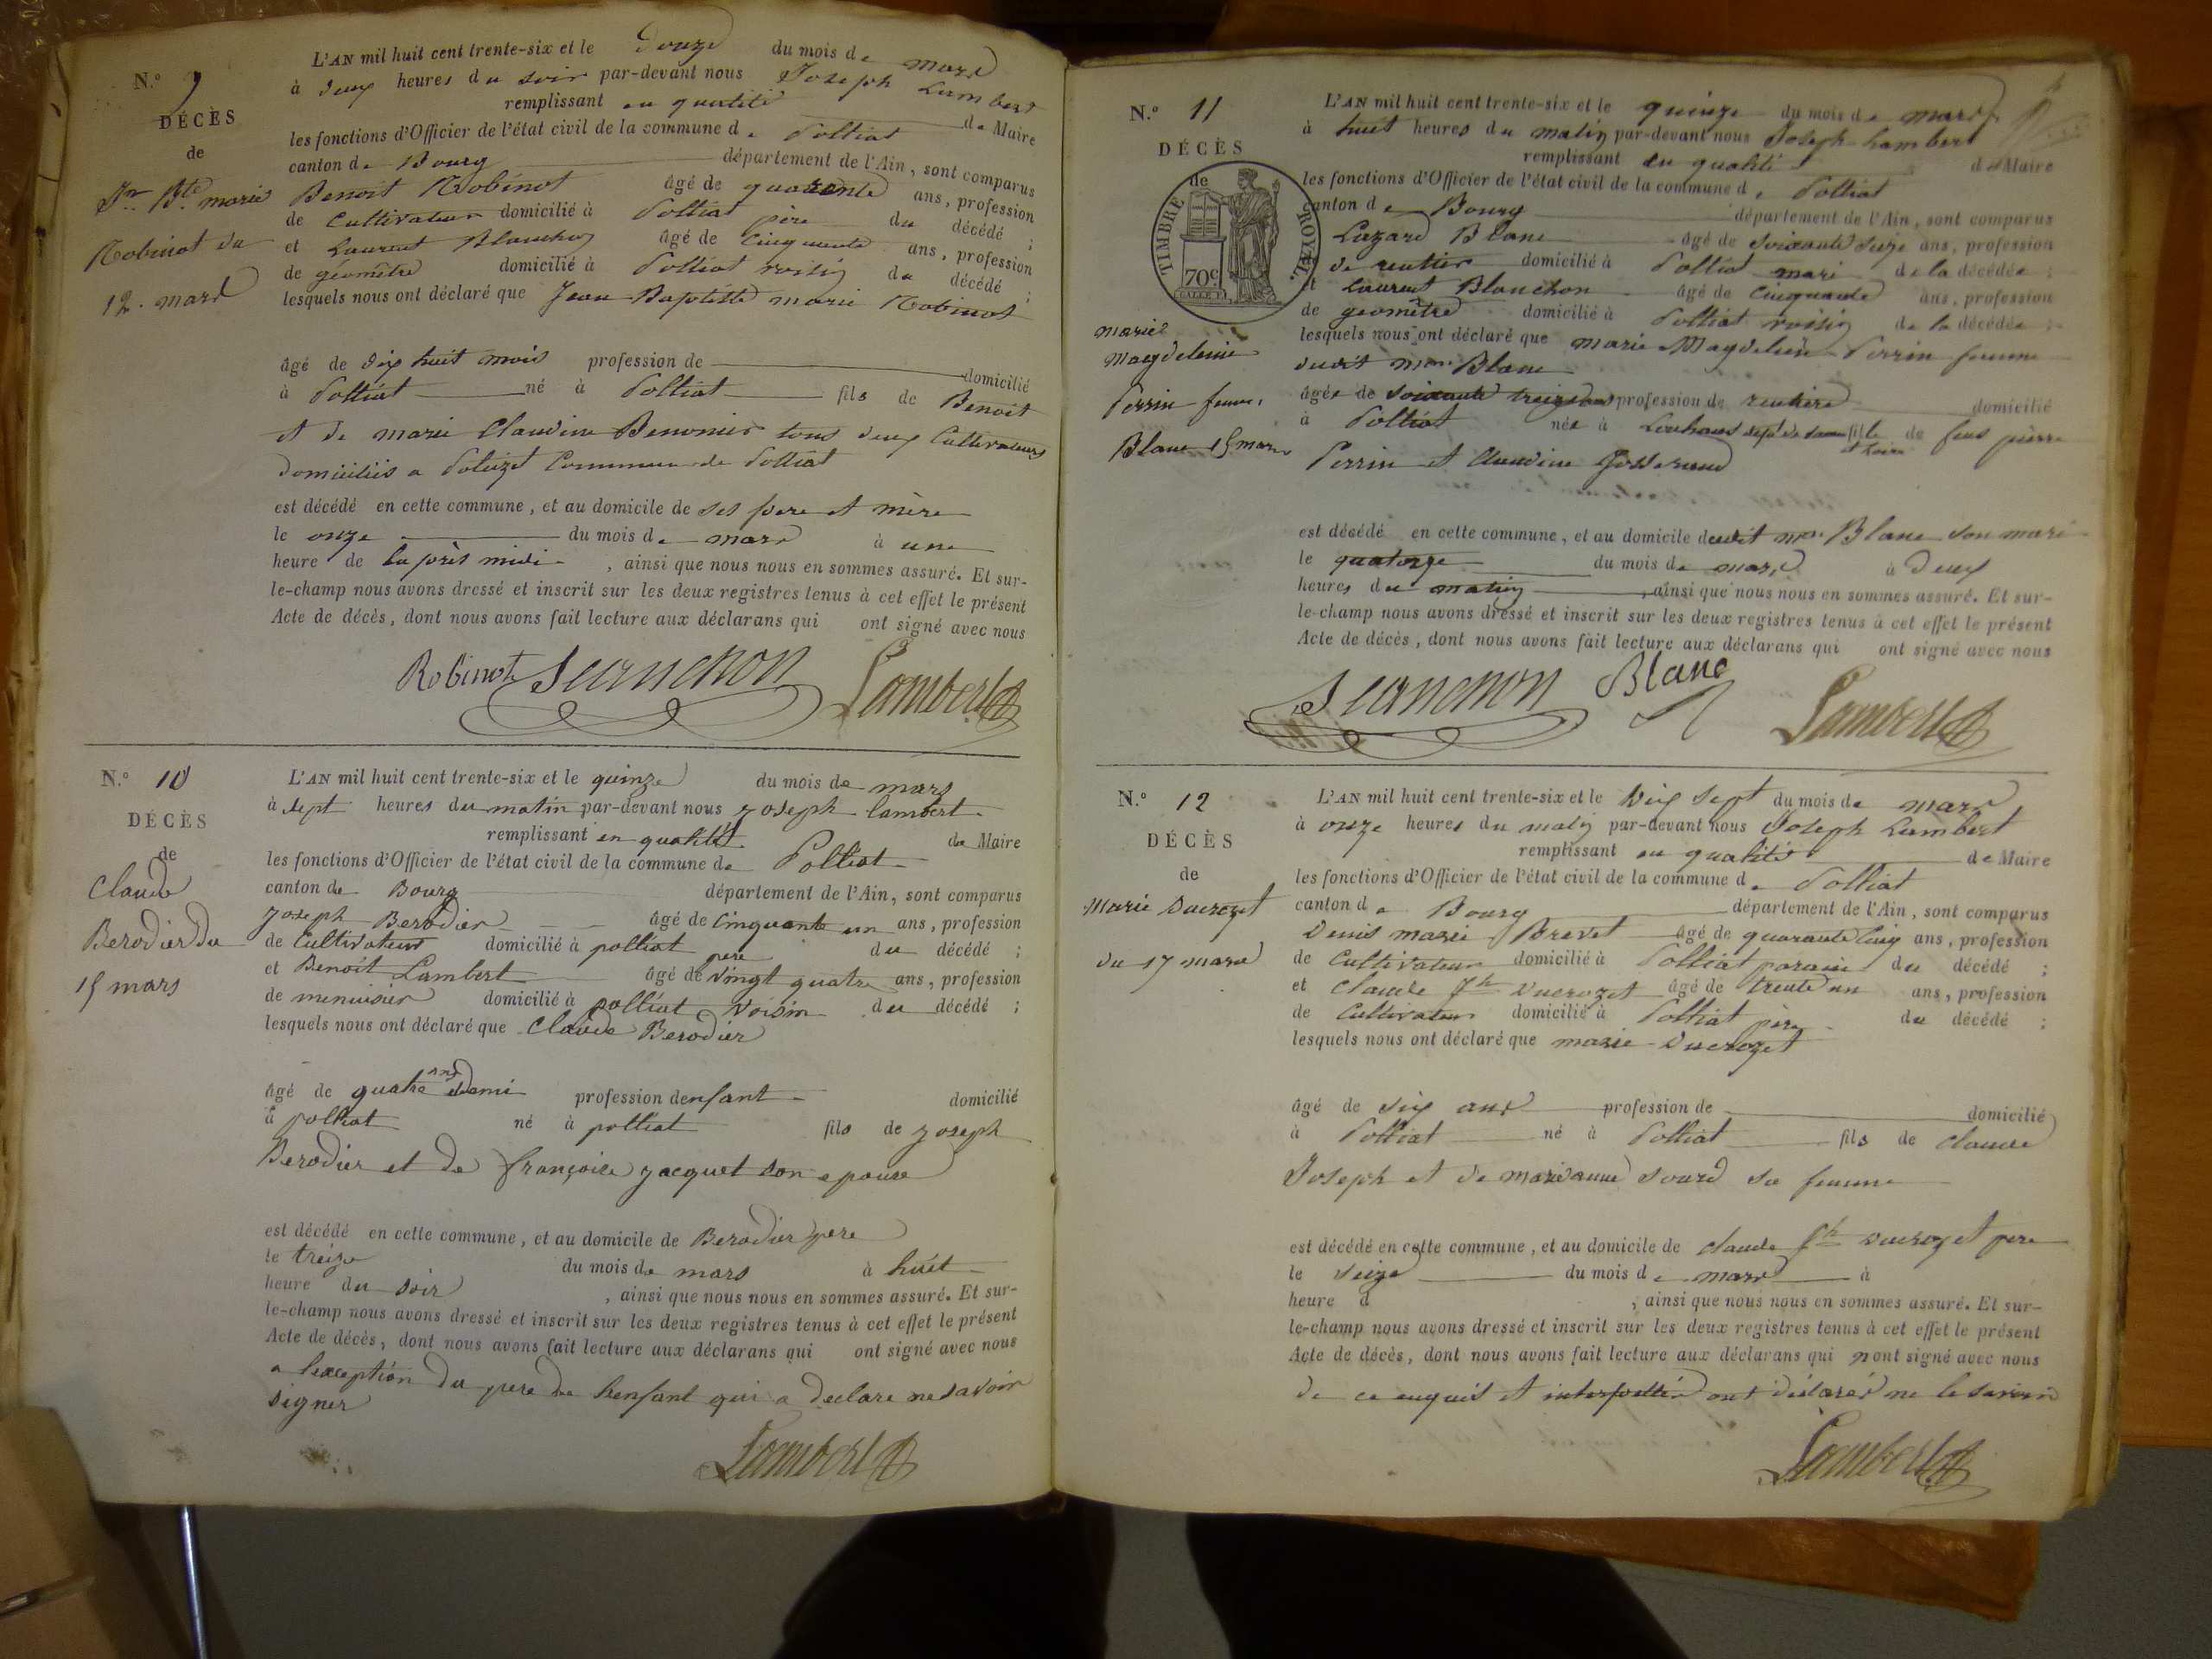 N.° 9
DÉCÈS
de
Jn Bte marie
Robinot du
12. mars
L'AN mil huit cent trente-six et le douze du mois de mars
à deux heures du soir par-devant nous Joseph Lambert
remplissant en qualité de Maire
les fonctions d'Officier de l'état civil de la commune de Polliat
canton de Bourg département de l'Ain, sont comparus
Benoit Robinot âgé de quarante ans, profession
de Cultivateur domicilié à Polliat père du décédé ;
et Laurent Blanchon âgé de cinquante ans, profession
de géomêtre domicilié à Polliat voisin du décédé ;
lesquels nous ont déclaré que Jean Baptiste marie Robinot
âgé de dix huit mois profession de domicilié
à Polliat né à Polliat fils de Benoit
et de marie Claudine Benonier tous deux Cultivateurs
domiciliés a Polezet Commune de Polliat
est décédé en cette commune, et au domicile de ses pere et mère
le onze du mois de mars à une
heure de la près midi , ainsi que nous nous en sommes assuré. Et sur-
le-champ nous avons dressé et inscrit sur les deux registres tenus à cet effet le présent
Acte de décès, dont nous avons fait lecture aux déclarans qui ont signé avec nous
Robinot Lambert
N.° 10
DÉCÈS
de
Claude
Berodier du
15 mars
L'AN mil huit cent trente-six et le quinze du mois de mars
à sept heures du matin par-devant nous joseph lambert
remplissant en qualité de Maire
les fonctions d'Officier de l'état civil de la commune de Polliat
canton de Bourg département de l'Ain, sont comparus
joseph Berodier âgé de Cinquante un ans, profession
de Cultivateur domicilié à polliat pere du décédé ;
et Benoit Lambert âgé de vingt quatre ans, profession
de menuisier domicilié à polliat voisin du décédé ;
lesquels nous ont déclaré que Claude Berodier
âgé de quatre ans demi profession denfant domicilié
à polliat né à polliat fils de joseph
Berodier et de françoise jacquet son epouse
est décédé en cette commune, et au domicile de Berodier pere
le treize du mois de mars à huit
heure du soir , ainsi que nous nous en sommes assuré. Et sur-
le-champ nous avons dressé et inscrit sur les deux registres tenus à cet effet le présent
Acte de décès, dont nous avons fait lecture aux déclarans qui ont signé avec nous
a lexception du pere de lenfant qui a declare ne savoir
signer
Lambert
N.° 11
DÉCÈS
de
TIMBRE ROYAL.
70c.
marie
magdeleine
Perrin femme
Blanc 15 mars
L'AN mil huit cent trente-six et le quinze du mois de mars
à huit heures du matin par-devant nous Joseph Lambert
remplissant en qualité de Maire
les fonctions d'Officier de l'état civil de la commune de Polliat
canton de Bourg département de l'Ain, sont comparus
Lazard Blanc âgé de soixante seize ans, profession
de rentier domicilié à Polliat mari de la décédée ;
et Laurent Blanchon âgé de Cinquante ans, profession
de geomêtre domicilié à Polliat voisin de la décédée ;
lesquels nous ont déclaré que marie Magdeleine Perrin femme
dudit mr Blanc
âgée de soixante treize ans profession de rentiere domicilié
à Polliat née à Louhans dept de Saone et Loire fille de feus pierre
Perrin et Claudine Josserand
est décédé en cette commune, et au domicile dudit mr Blanc son mari
le quatorze du mois de mars à deux
heures du matin , ainsi que nous nous en sommes assuré. Et sur-
le-champ nous avons dressé et inscrit sur les deux registres tenus à cet effet le présent
Acte de décès, dont nous avons fait lecture aux déclarans qui ont signé avec nous
Blanc Lambert
N.° 12
DÉCÈS
de
Marie Ducrozet
du 17 mars
L'AN mil huit cent trente-six et le dix sept du mois de mars
à onze heures du matin par-devant nous Joseph Lambert
remplissant en qualité de Maire
les fonctions d'Officier de l'état civil de la commune de Polliat
canton de Bourg département de l'Ain, sont comparus
Denis marie Brevet âgé de quarante Cinq ans, profession
de Cultivateur domicilié à Polliat parain du décédé ;
et Claude Jh Ducrozet âgé de trente un ans, profession
de Cultivateur domicilié à Polliat père du décédé ;
lesquels nous ont déclaré que marie Ducrozet
âgé de six ans profession de domicilié
à Polliat né à Polliat fils de Claude
Joseph et de marianne Sourd sa femme
est décédé en cette commune, et au domicile de Claude Jh Ducrozet pere
le seize du mois de mars à
heure d , ainsi que nous nous en sommes assuré. Et sur-
le-champ nous avons dressé et inscrit sur les deux registres tenus à cet effet le présent
Acte de décès, dont nous avons fait lecture aux déclarans qui nont signé avec nous
de ce enquis et interpellés ont déclarés ne le savoir
Lambert